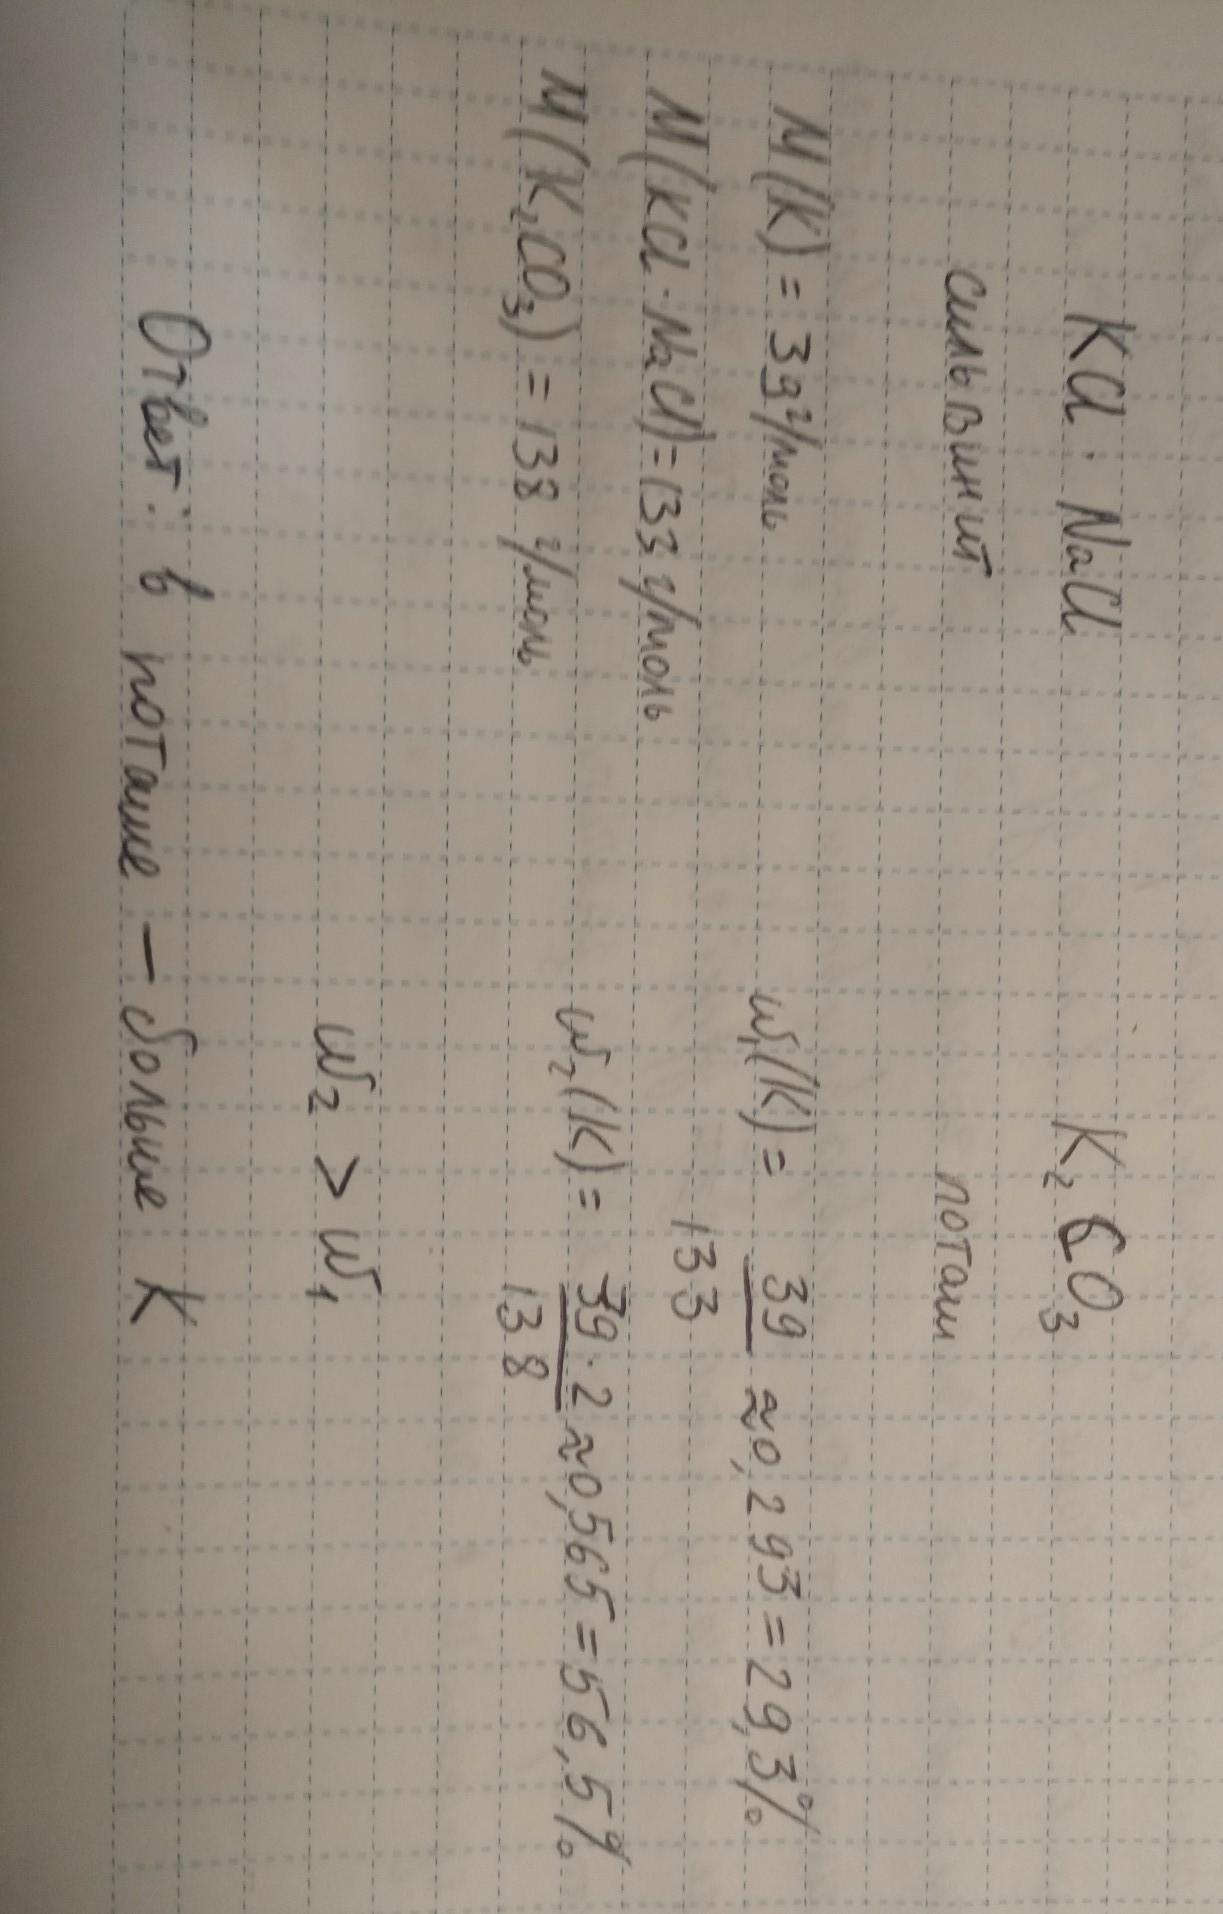 KCl · NaCl K₂CO₃
сильвинит поташ
M(K) = 39 г/моль ω₁(K) = 39/133 ≈ 0,293 = 29,3%
M(KCl · NaCl) = 133 г/моль
M(K₂CO₃) = 138 г/моль ω₂(K) = 39·2/138 ≈ 0,565 = 56,5%
ω₂ > ω₁
Ответ: в поташе – больше K